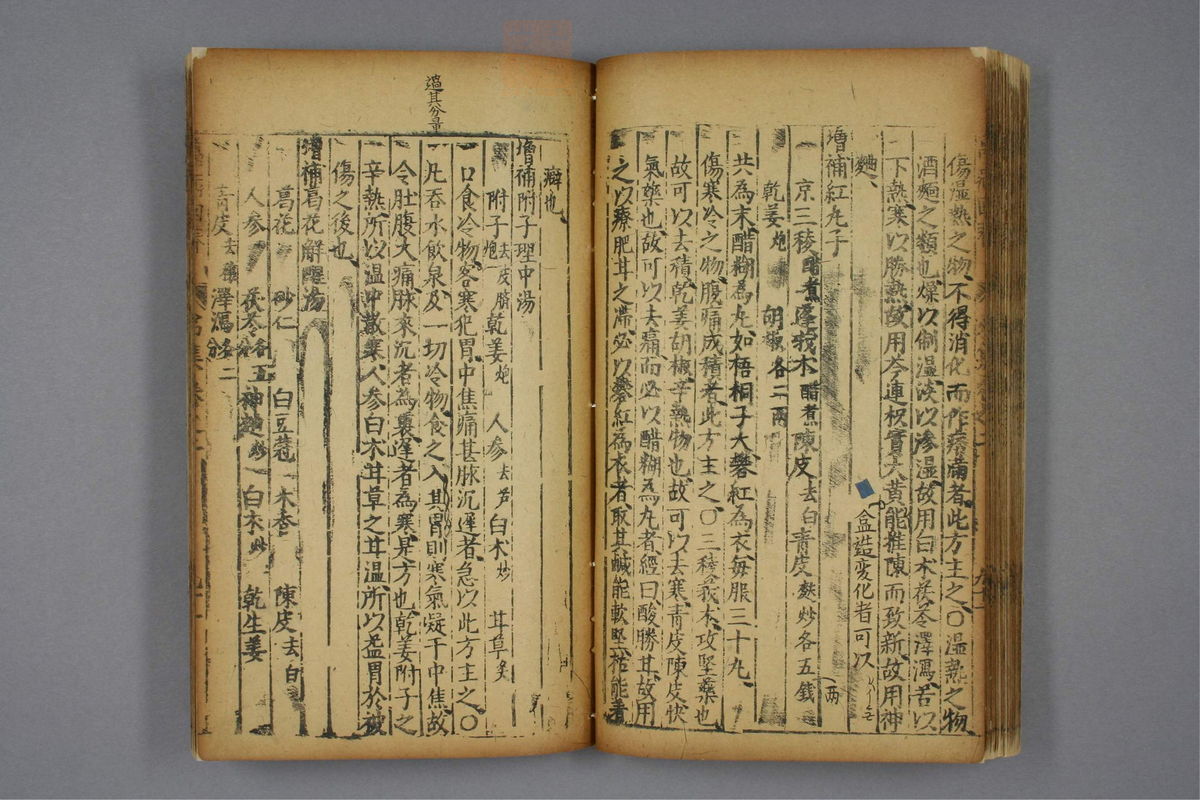 傷湿熱之物不得消化而作痞滿者此方主之〇湿熱之物
酒麺之類也燥以制湿淡以滲湿故用白朮茯苓澤瀉苦以
下熱寒以勝熱故用芩連枳實大黄能推陳而致新故用神
麯
盒造変化者可以
増補紅丸子
京三稜醋煮蓬莪朮醋煮陳皮去白青皮麩炒各五錢
両
乾姜炮 胡椒各二両
共為末醋糊為丸如梧桐子大礬紅為衣每服三十丸
傷寒冷之物腹痛成積者此方主之〇三稜莪朮攻堅藥也
故可以去積乾姜胡椒辛熱物也故可以去寒青皮陳皮快
氣藥也故可以去痛而必以醋糊為丸者經曰酸勝甘故用
之以療肥甘之滞必以礬紅為衣者取其鹹能軟堅枯能着
癖也
増補附子理中湯
附子炮去皮臍 乾姜炮 人參去芦 白朮炒 甘草炙
口食冷物客寒犯胃中焦痛甚脉沉遲者急以此方主之〇
過其分量
凡吞水飲泉及一切冷物食之入其胃則寒氣凝于中焦故
令肚腹大痛脉來沉者為裏遲者為寒是方也乾姜附子之
辛熱所以温中散寒人參白朮甘草之甘温所以益胃於被
傷之後也
増補葛花解酲湯
葛花 砂仁 白豆蔲 木香 陳皮去白
人參 茯苓各五 神麯炒 白朮炒 乾生姜
青皮去穰 澤瀉各二